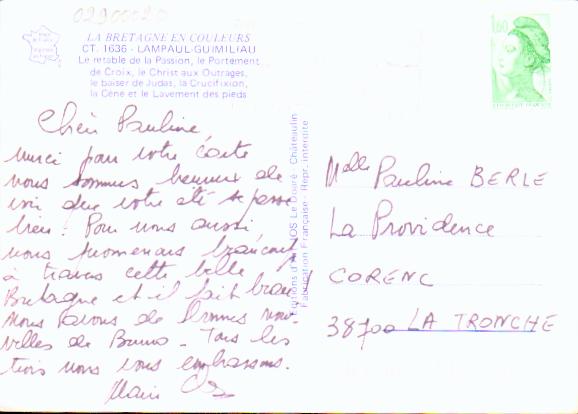 02900020
LA BRETAGNE EN COULEURS
CT. 1636 - LAMPAUL-GUIMILIAU
Le retable de la Passion, le Portement
de Croix, le Christ aux Outrages,
le baiser de Judas, la Crucifixion,
la Cène et le Lavement des pieds
1,60
Chère Pauline,
merci pour votre carte
nous sommes heureux de
voir que votre été se passe
bien! Pour nous aussi,
nous promenons beaucoup
à travers cette belle
Bretagne et il fait beau
Nous avons de bonnes nou-
velles de Bruno - Tous les
trois nous vous embrassons.
Editions d'Art JOS Le Doaré - Châteaulin
Fabrication Française - Repr. interdite
Melle Pauline BERLE
La Providence
CORENC
38700 LA TRONCHE